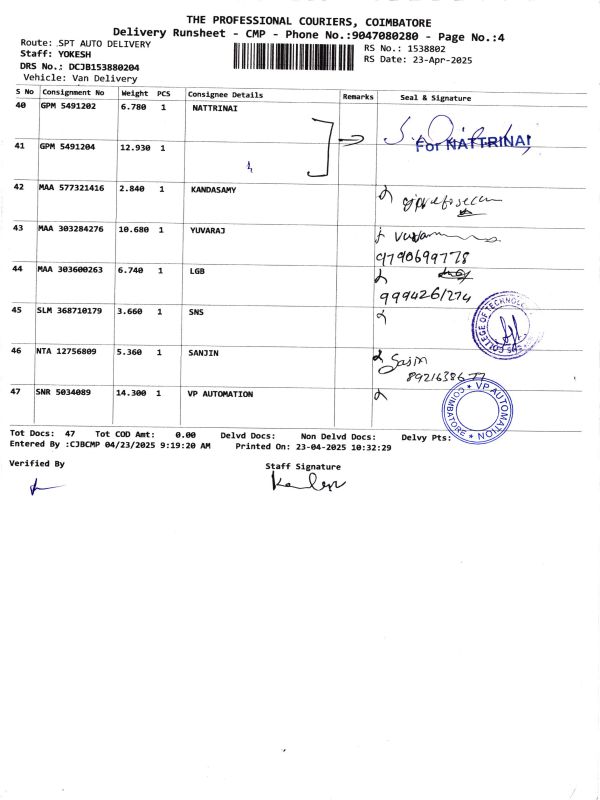 THE PROFESSIONAL COURIERS, COIMBATORE
Delivery Runsheet - CMP - Phone No.:9047080280 - Page No.:4
Route: SPT AUTO DELIVERY
Staff: YOKESH
DRS No.: DCJB153880204
Vehicle: Van Delivery
RS No.: 1538802
RS Date: 23-Apr-2025
S No Consignment No Weight PCS Consignee Details Remarks Seal & Signature
40 GPM 5491202 6.780 1 NATTRINAI
For NATTRINAI
41 GPM 5491204 12.930 1
42 MAA 577321416 2.840 1 KANDASAMY
43 MAA 303284276 10.680 1 YUVARAJ
9790699778
44 MAA 303600263 6.740 1 LGB
9994261274
45 SLM 368710179 3.660 1 SNS
COLLEGE OF TECHNOLOGY
46 NTA 12756809 5.360 1 SANJIN
47 SNR 5034089 14.300 1 VP AUTOMATION
VP AUTOMATION COIMBATORE
Tot Docs: 47 Tot COD Amt: 0.00 Delvd Docs: Non Delvd Docs: Delvy Pts:
Entered By :CJBCMP 04/23/2025 9:19:20 AM Printed On: 23-04-2025 10:32:29
Verified By
Staff Signature